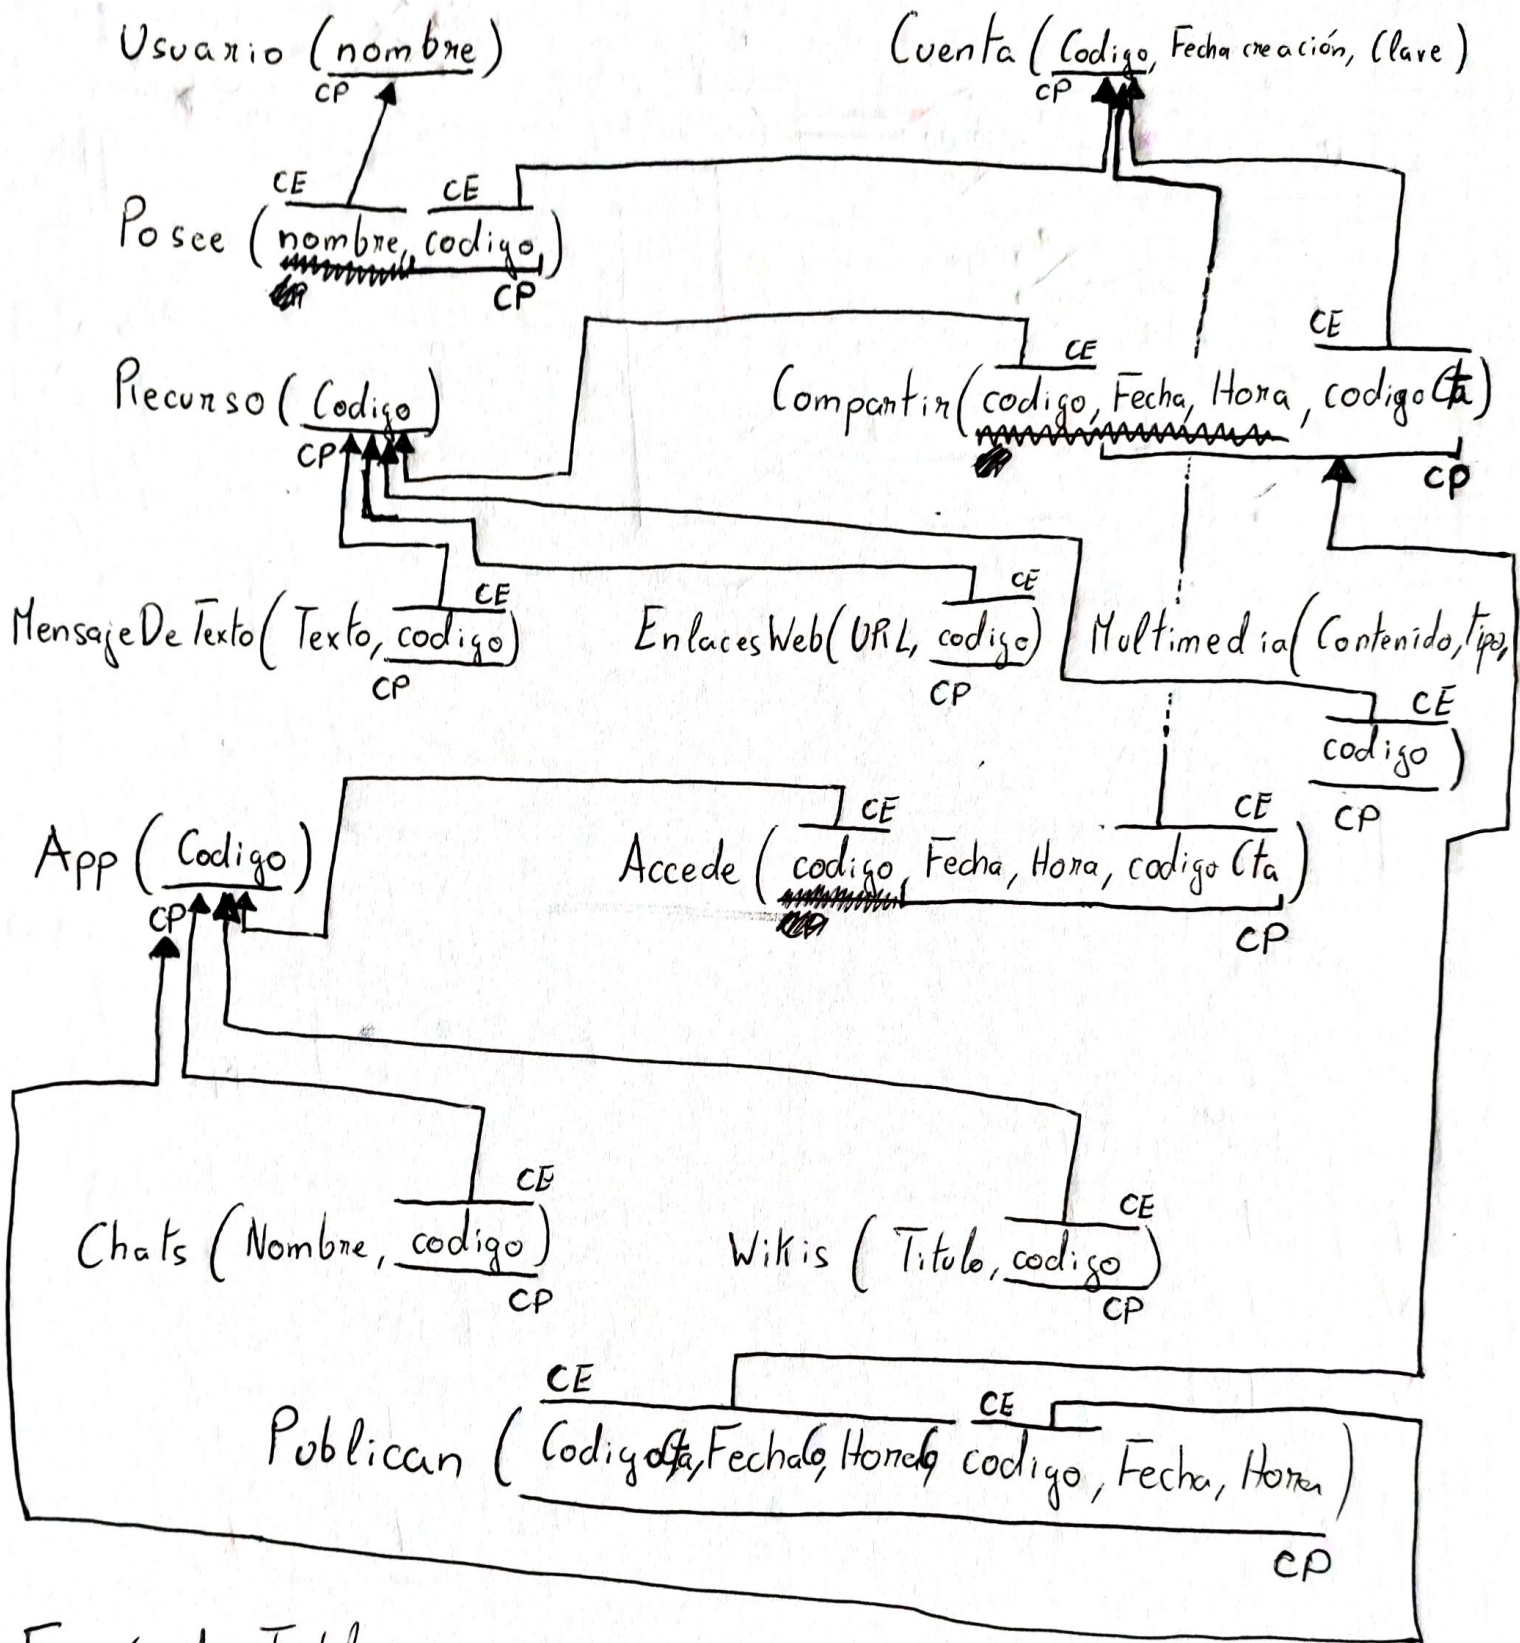 Usuario (nombre)
CP
Cuenta (Codigo, Fecha creación, Clave)
CP
CE CE
Posee (nombre, codigo,)
CP
CE CE
Recurso (Codigo)
CP
Compartir(codigo, Fecha, Hora, codigoCta)
CP
CE
MensajeDeTexto( Texto, codigo)
CP
CE
EnlacesWeb(URL, codigo)
CP
Multimedia( Contenido, tipo,
CE
codigo)
CP
App (Codigo)
CP
CE CE
Accede ( codigo, Fecha, Hora, codigo Cta)
CP
CE
Chats ( Nombre, codigo)
CP
CE
Wikis ( Titulo, codigo)
CP
CE CE
Publican ( CodigoCta, FechaCo, HoraCo, codigo, Fecha, Hora)
CP